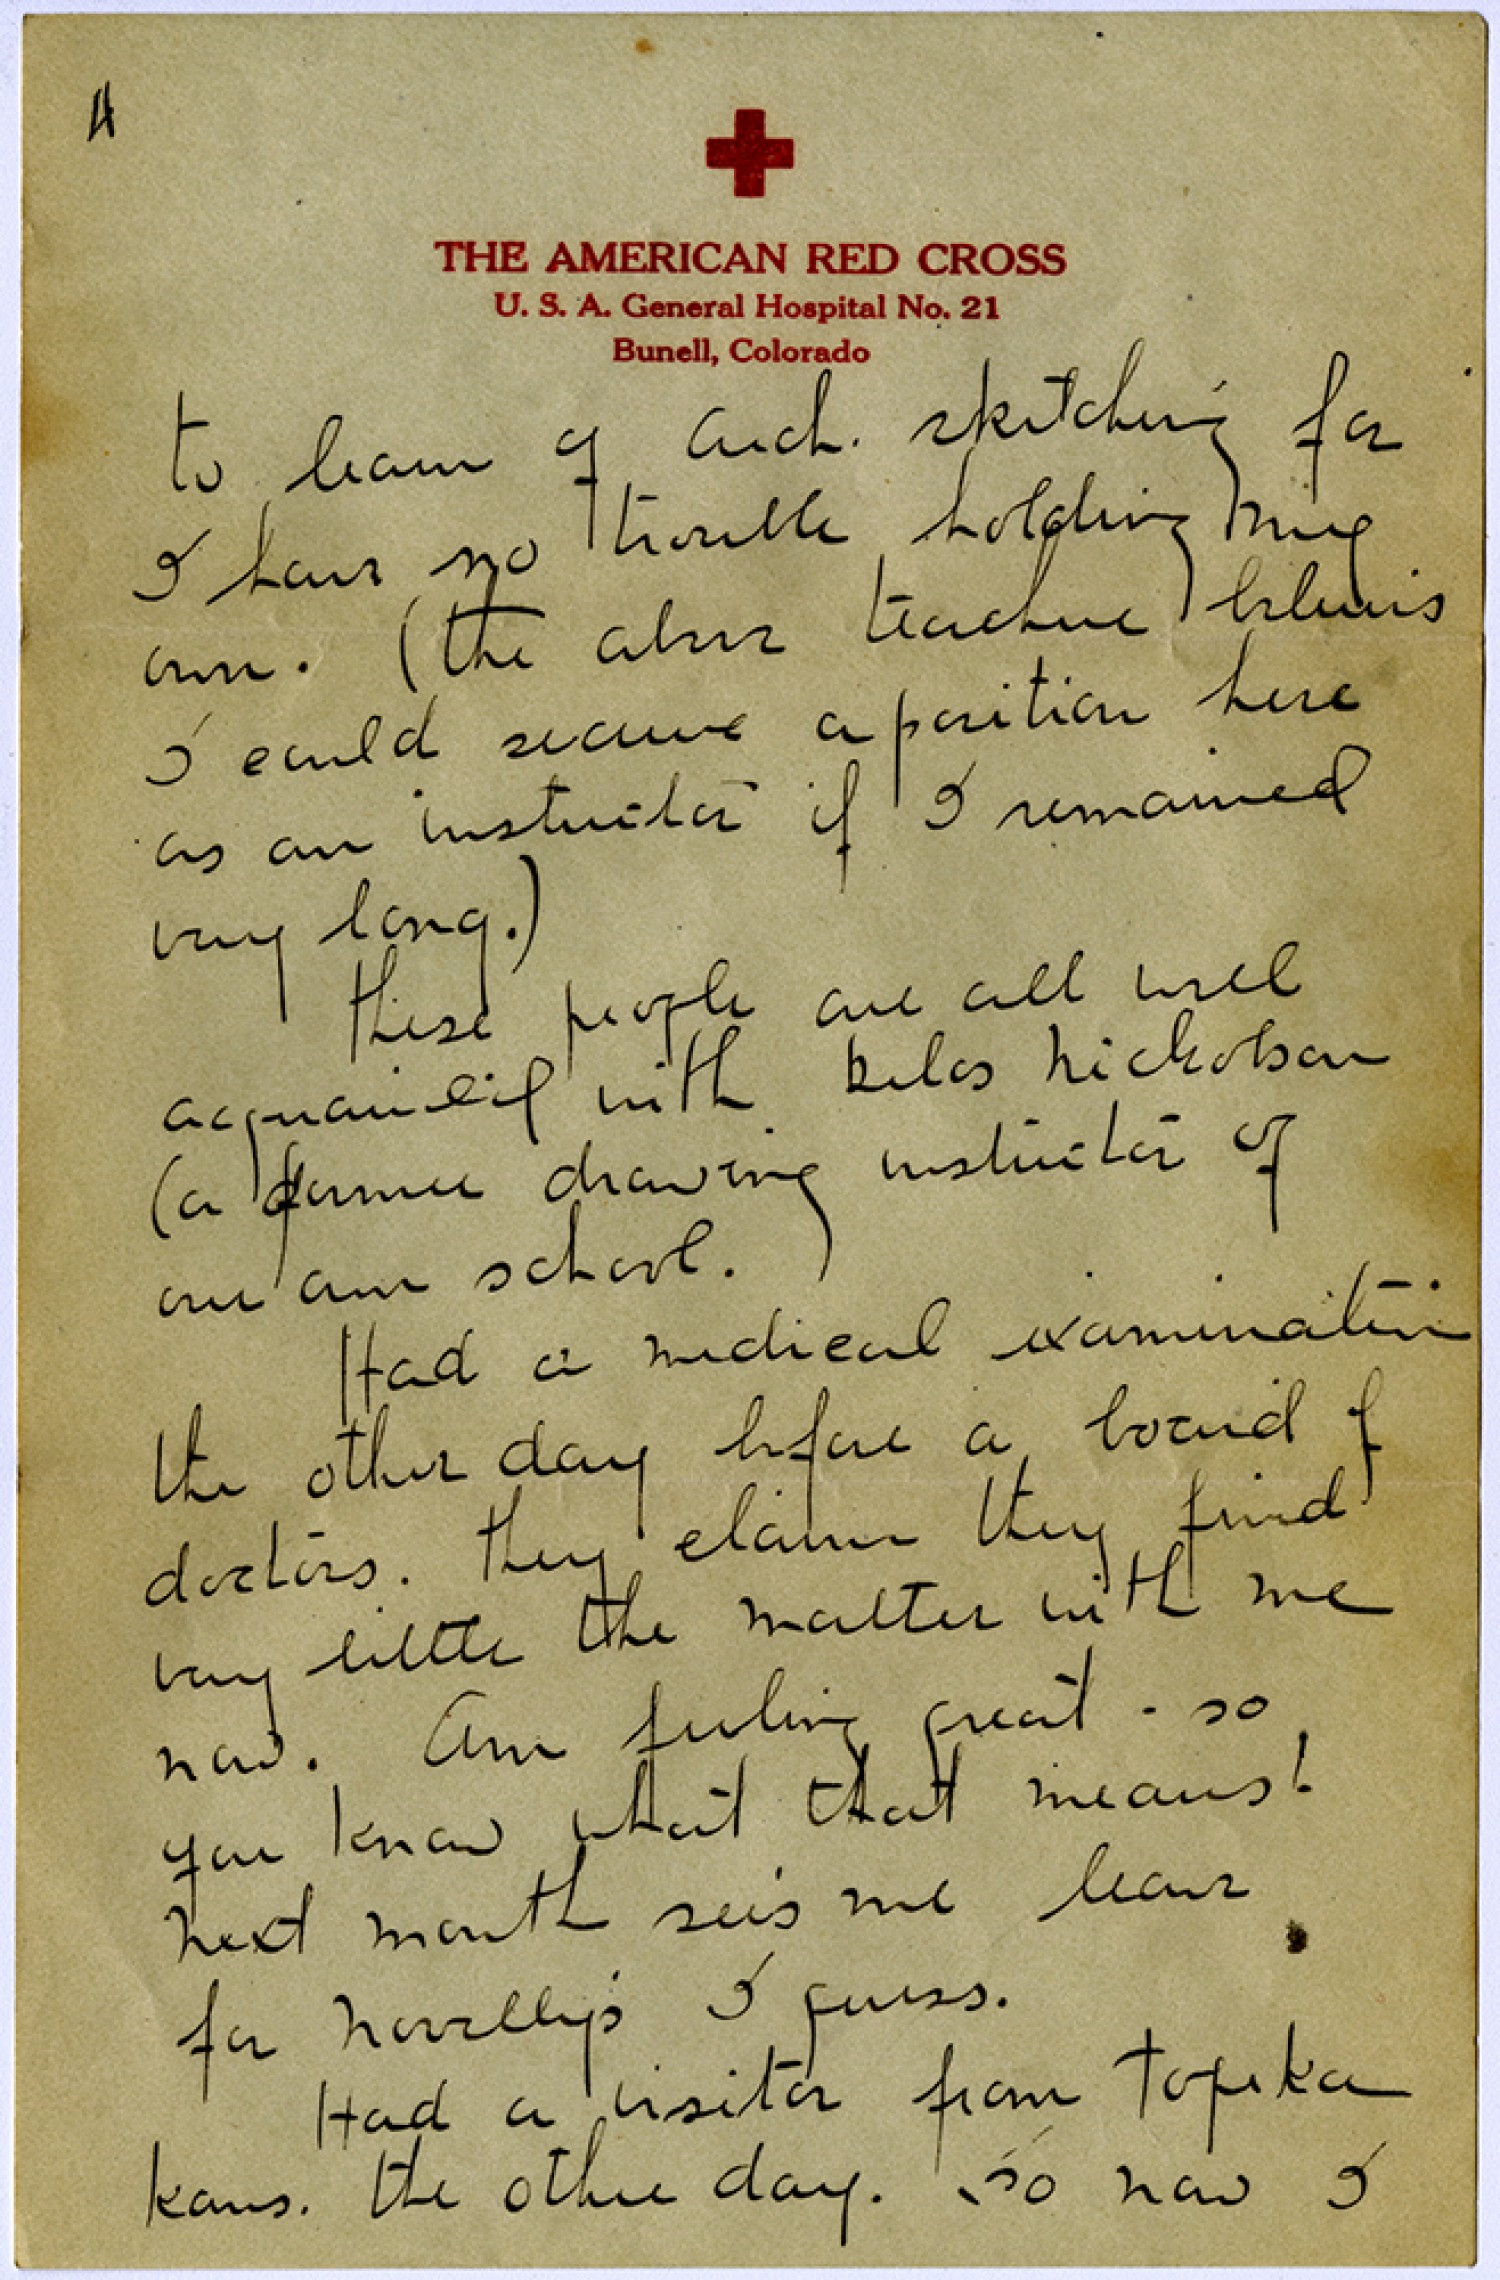 4
THE AMERICAN RED CROSS
U. S. A. General Hospital No. 21
Bunell, Colorado
to learn of Arch. sketching for
I have no trouble holding my
own. (The above teacher believes
I could secure a position here
as an instructor if I remained
very long.)
These people are all well
acquainted with Nickolson
(a former drawing instructor of
our own school.)
Had a medical examination
the other day before a board of
doctors. They claim they find
very little the matter with me
now. Am feeling great - so
you know what that means!
Next month sees me leave
for I guess.
Had a visitor from Topeka
Kans. the other day. So now I